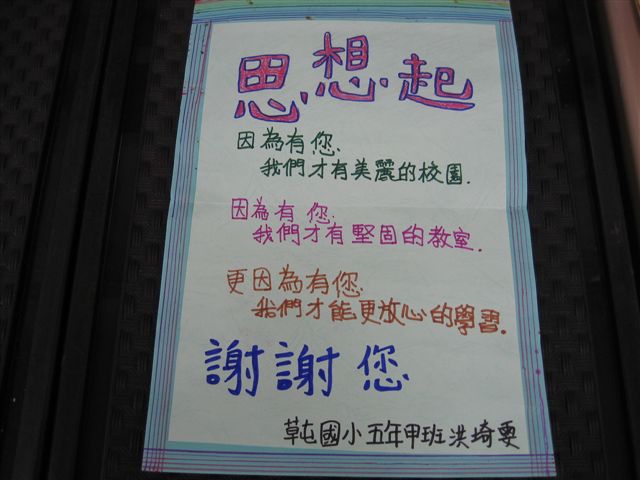 思想起
因為有您.
我們才有美麗的校園.
因為有您.
我們才有堅固的教室.
更因為有您.
我們才能更放心的學習.
謝謝您
草屯國小五年甲班洪埼雯